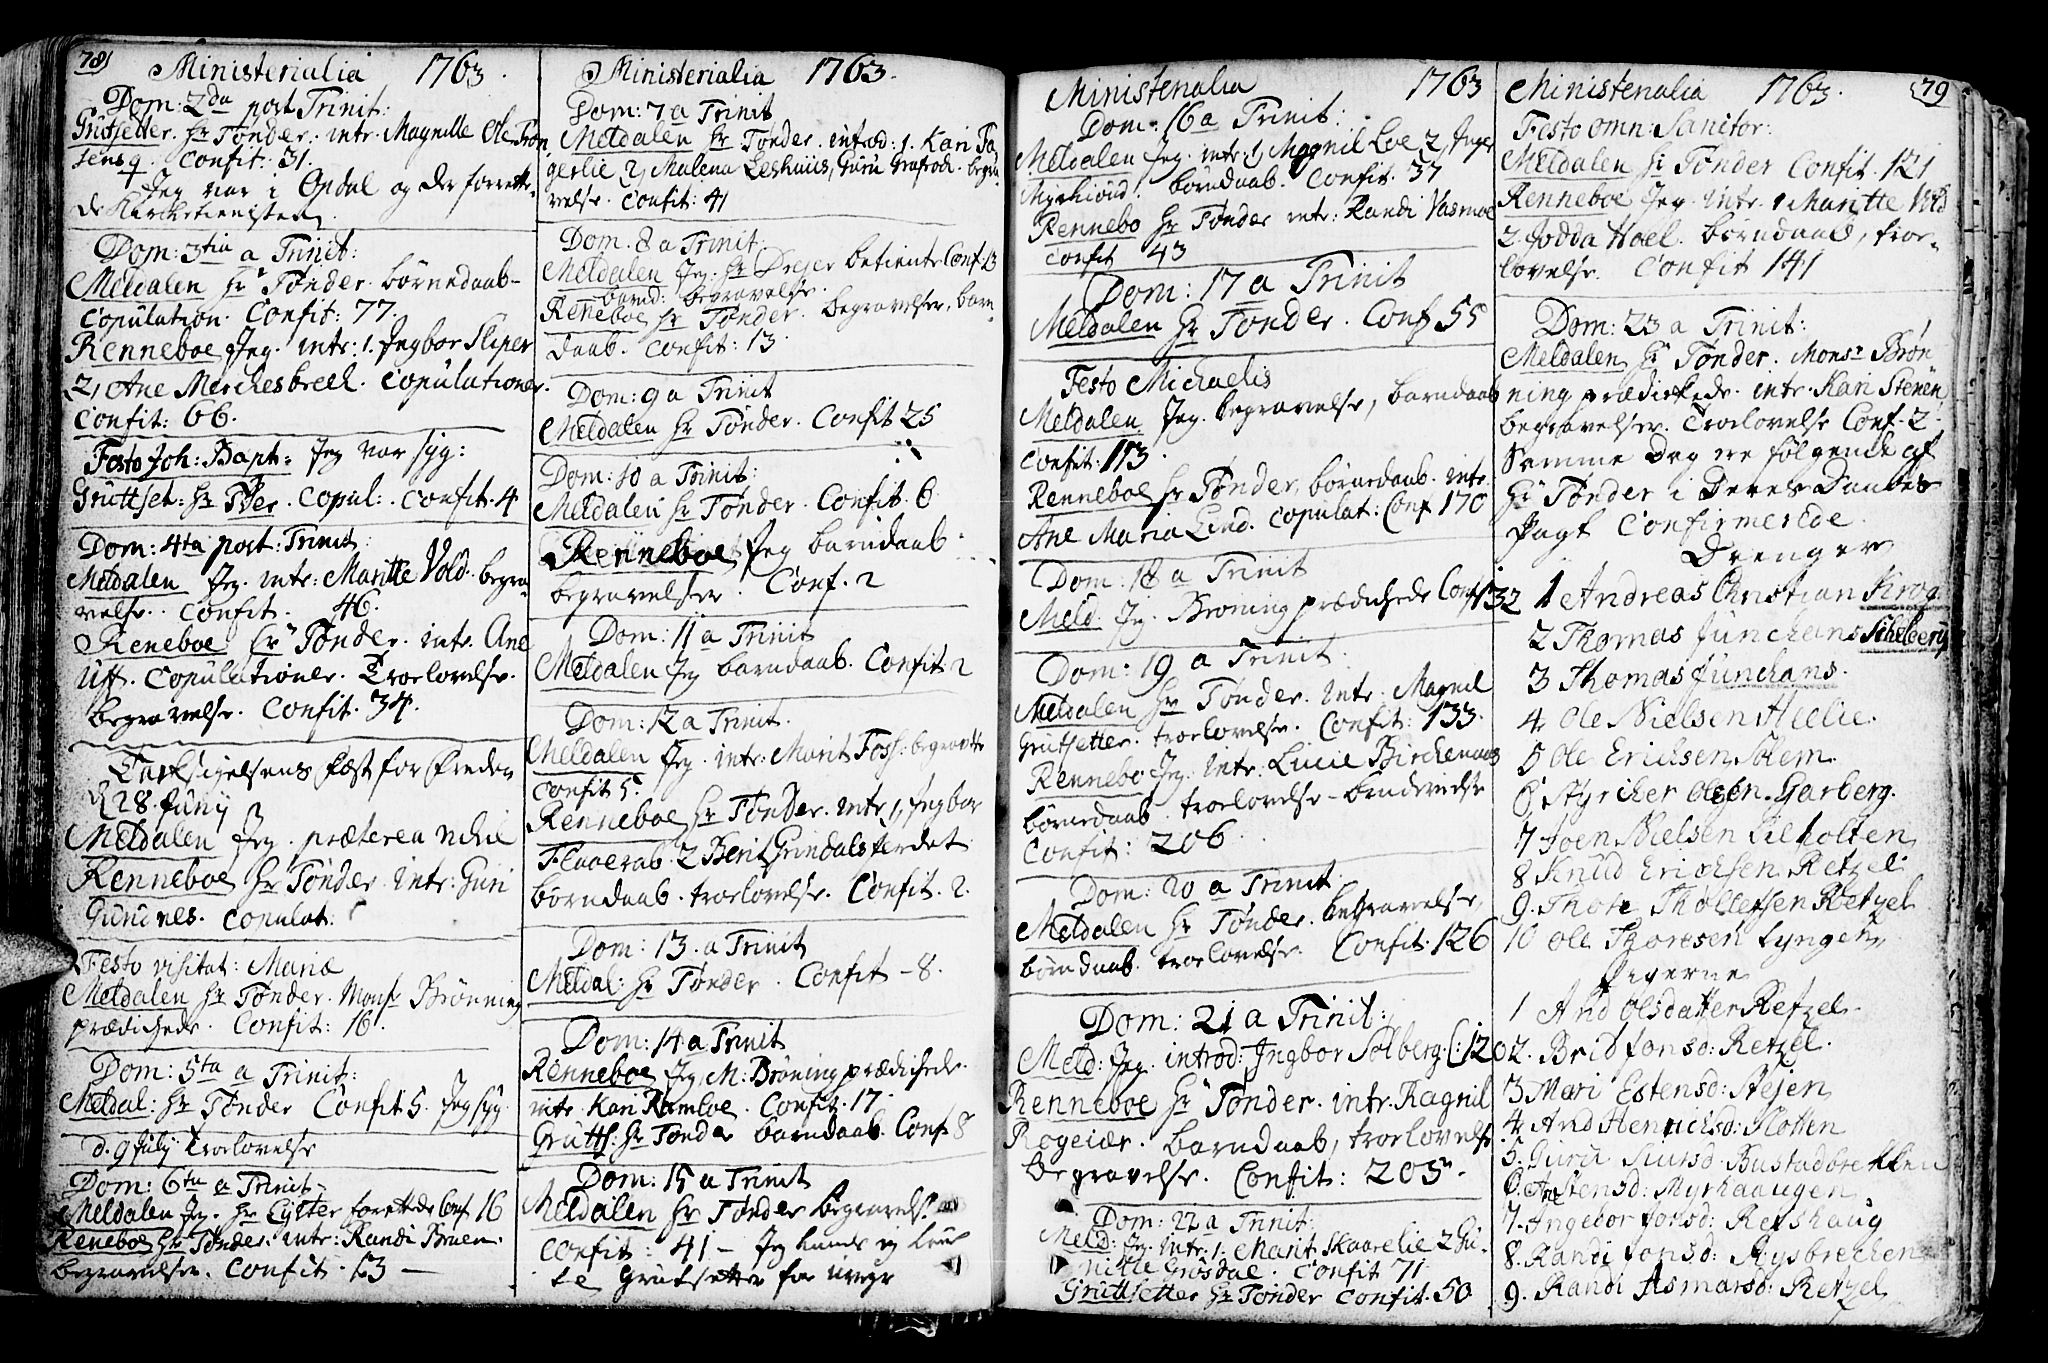 78
Ministerialia 1763.
Dom: 2da post Trinit:
Grütsetter. Hr Tønder. intr. Magnille Ole Tron
sens q. Confit: 31.
Jeg var i Opdal og der forrette-
de Kirketienisten
Dom: 3tia a Trinit:
Meldalen Hr Tønder. børnedaab-
Copulation. Confit: 77.
Renneboe Jeg. intr: 1. Ingbor Sliper
2, Ane Merchesbreck. Copulationer.
Confit: 66.
Festo Joh: Bapt: Jeg var syg:
Grüttset: Hr Tder. Copul:. Confit. 4
Dom: 4ta post: Trinit:
Meldalen Jeg. intr: Maritte Vold. begra-
velse. Confit. 46.
Reneboe Hr Tønder. intr. Ane
Uff. Copulationer. Troelovelse.
begravelse. Confit. 34.
Taksigelsens fæst for Freden
d 28. Junij
Meldalen Jeg. præterea nihil
Renneboe Hr Tønder. intr: Guri
Gunnes. Copulat:
Festo visitat: Mariæ
Meldalen Hr Tønder. Monsr Brønning
prædichede. Confit: 16.
Dom: 5ta a Trinit:
Meldal: Hr Tønder Confit 5. Jeg syg.
d. 9 Julij Troelovelse
Dom: 6ta a Trinit-
Meldalen Jeg. Hr Lytter forettede Conf 16
Reneboe Hr Tønder. intr: Randi Bruen.
begravelser. Confit. 13 —
Ministerialia 1763.
Dom: 7 a Trinit
Meldalen Hr Tønder. introd: 1. Kari Fa
gerlie 2, Malena Leshuus, Guru Grefrod. begra-
velse. Confit: 41
Dom. 8 a Trinit.
Meldalen Jeg. Hr Drejer betiente Conf: 13
barnd: begravelse.
Reneboe Hr Tønder. begravelser, barn-
daab. Confit: 13.
Dom: 9 a Trinit
Meldalen Hr Tønder. Confit 25
Dom: 10 a Trinit:
Meldalen Hr Tønder. Confit. 6
Renneboe Jeg barndaab.
begravelser. Conf. 2
Dom: 11 a Trinit
Meldalen Jeg barndaab. Confit: 2
Dom: 12 a Trinit.
Meldalen Jeg. intr: Marit Foss: begravelse
Confit 5.
Renneboe Hr Tønder. intr 1, Ingbor
Flaaerab. 2 Berit Grindalsferdet
børndaab. troelovelse. Confit. 2.
Dom: 13. a Trinit
Meldal: Hr Tønder. Confit - 8.
Dom: 14 a Trinit
Renneboe Jeg, M: Brøning prædichede.
intr. Kari Ramloe. Confit. 17.
Grütts: Hr Tønder barndaab. Conf 8
Dom: 15 a Trinit
Meldalen Hr Tønder begravels:
Confit: 41 — Jeg kunde ej kom
te Grütsetter for uvejr
Ministerialia 1763
Dom: 16 a Trinit:
Meldalen Jeg. intr: 1, Magnil Loe 2, Inger
børndaab. Confit. 37
Rennebo Hr Tønder intr: Randi Vasmoe
Confit 43
Dom: 17 a Trinit
Meldalen Hr Tønder. Conf 55
Festo Michaelis
Meldalen Jeg. begravelse, barndaab
Confit. 113.
Renneboe Hr Tønder, børnedaab. intr.
Ane Maria Lind. Copulat: Conf 170
Dom: 18 a Trinit
Meld. Jeg. Broning prædichede Conf 132
Dom: 19 a Trinit.
Meldalen Hr Tønder. intr. Magnil
Grütsetter. troelovelse. Confit: 133.
Rennebo Jeg. intr: Lucie Birchenaas
børnedaab. troelovelse-
Confit: 206.
Dom: 20 a Trinit.
Meldalen Hr Tønder. begravelse,
børndaab. troelovelse. Confit. 126
Dom: 21 a Trinit:
Meld: Jeg. introd: Ingbor Solberg. C: 120
Renneboe Hr Tønder. intr. Ragnil
Rogeiær. barndaab, troelovelse.
Begravelse. Confit: 205.
Dom: 22 a Trinit:
Meld: Jeg intr. 1. Marit Skaarelie 2 Gu-
nille Grøsdal. Confit 71
Grüttsetter Hr Tønder Confit. 50
Ministerialia 1763. 79
Festo omn: Sanctor:
Meldalen Hr Tønder Confit. 121
Renneboe Jeg. intr. 1 Maritte Vold
2. Jodda Hoel. børndaab, troe-
lovelse. Confit 141
Dom: 23 a Trinit:
Meldalen Hr Tønder. Monsr Brøn
ning prædickede. intr. Kari Stenen
begravelser. Troelovelse Conf. 2.
Samme Dag ere følgende af
Hr Tønder i Deres Daabes
Pagt Confirmerede.
Drenger
1 Andreas Christian Krog.
2 Thomas Junchans Schelberg
3 Thomas Junchans.
4 Ole Nielsen Heelie.
5 Ole Erichsen Solem.
6 Stÿrcher Olsen. Garberg.
7 Joen Nielsen Lilholten
8 Knud Erichsen Retzel:
9. Thore Thollefsen Retzel
10 Ole Thoresen Lyngen,
Pigerne
1 And Olsdatter Retzel.
2. Brid Jonsd: Retzel.
3 Mari Estensd: Stejen
4 And Henrichsd: Slotten
5. Guru Siursd. Bustadbrekken
6. Ane Stensd: Myrhaaugen
7. Angebor Jonsd: Refshaug
8. Randi Jonsd: Rysbrechen
9. Randi Asmarsd: Retzel